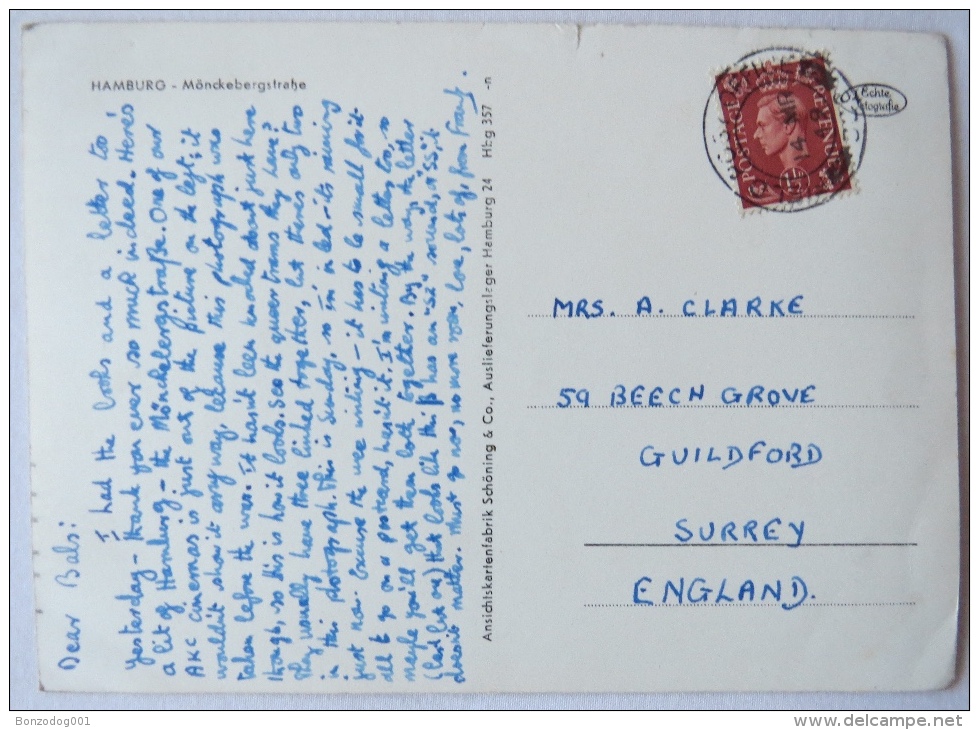 HAMBURG - Mönckebergstraße
Dear Babs:
I had the books and a letter too,
yesterday - thank you ever so much indeed. Here's
a bit of Hamburg - the Mönckebergstraße. One of our
AKC cinemas is just out of the picture on the left; it
wouldn't show it any way, because this photograph was
taken before the war. It hasn't been knocked about just here
though, so this is how it looks. See the queer trams they have?
They usually have three linked together, but there's only two
in this photograph. This is Sunday, so I'm in bed - it's raining
just now. Excuse the wee writing - it has to be small for it
all to go on a postcard, hasn't it. I'm writing a letter too, so
maybe you'll get them both together. By the way, the letter
(last but one) that looks like this β has an "sz" sound, or "SS"; it
doesn't matter. Must go now, no more room, love, lots of, from Frank.
Ansichtskartenfabrik Schöning & Co., Auslieferungslager Hamburg 24 Hbg 357 -n
POSTAGE
14 MR
48
Echte
Fotografie
MRS. A. CLARKE
59 BEECH GROVE
GUILDFORD
SURREY
ENGLAND.
Bonzodog001
delcampe.net